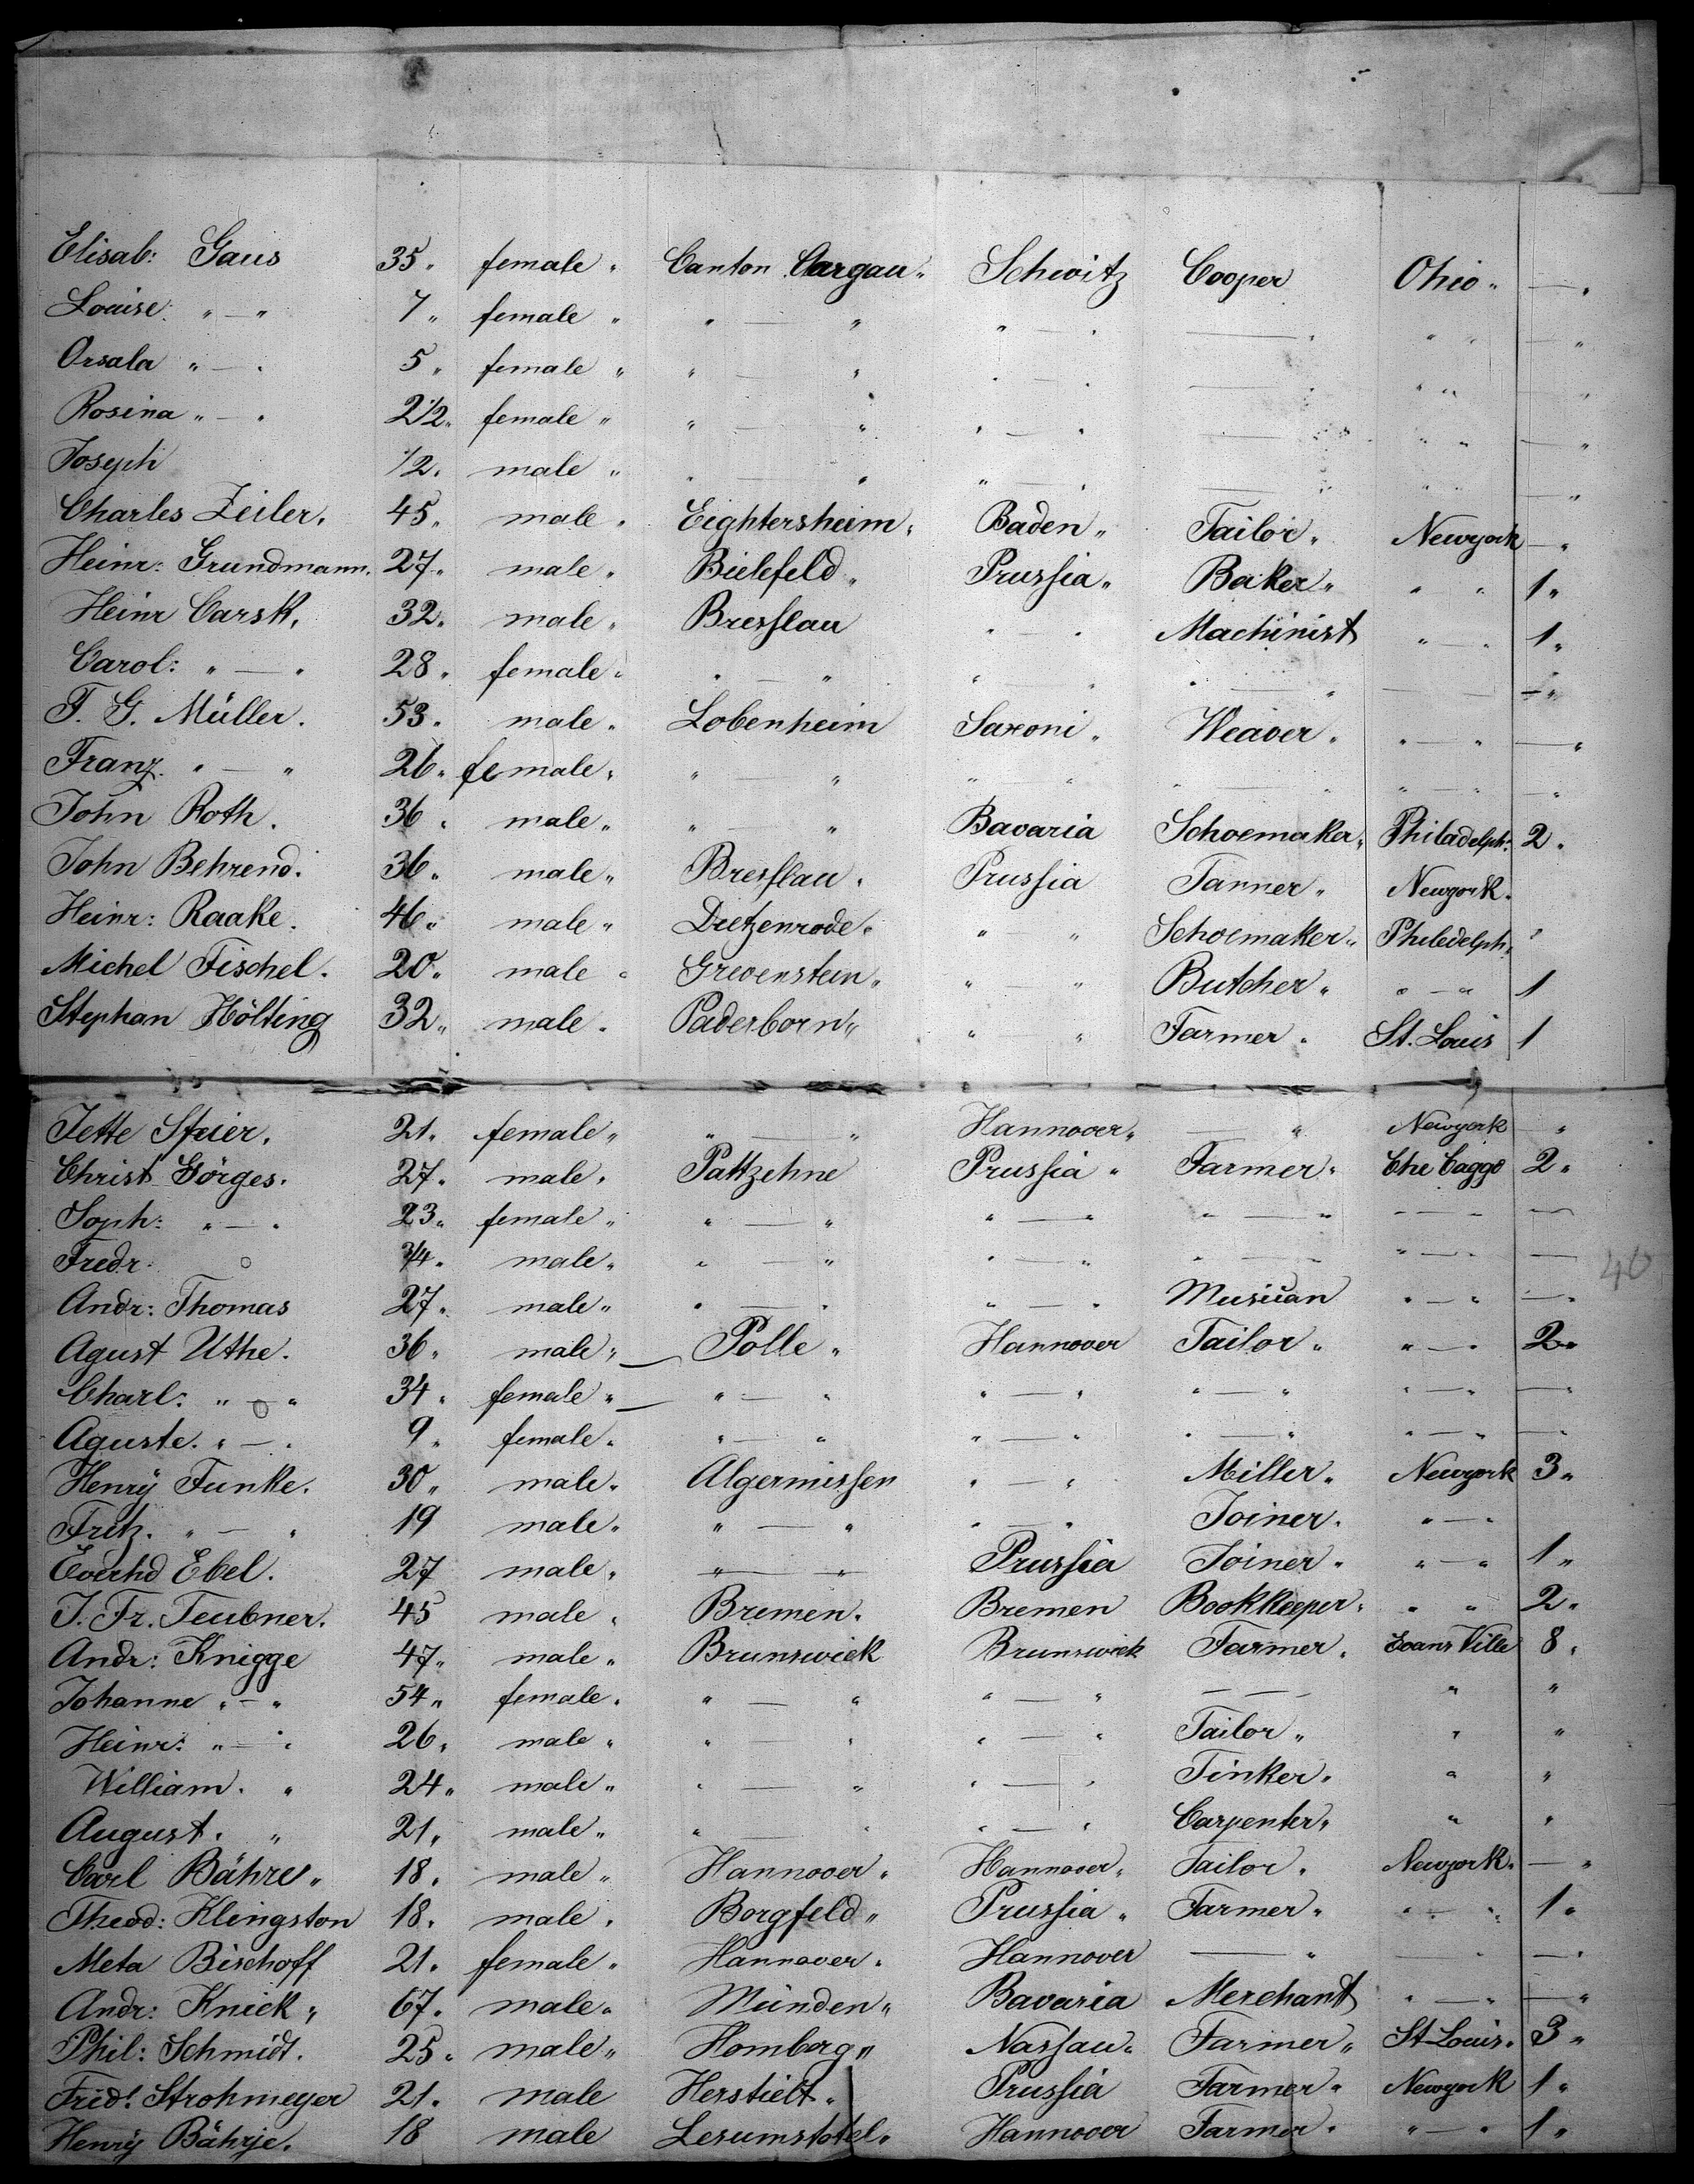 Elisab: Gaus 35 " female " Canton Aargau " Schwitz Cooper Ohio " — "
Louise: " — " 7 " female " " — " " — " — " " " — "
Orsala " — " 5 " female " " — " " — " — " " " — "
Rosina " — " 2 1/2 " female " " — " " — " — " " " — "
Joseph 1/2 " male " " — " " — " — " " " — "
Charles Zeiler. 45 " male " Eightersheim " Baden " Tailor " Newyork — "
Heinr: Grundmann. 27 " male " Bielefeld " Prussia " Baker " " " 1 "
Heinr Carsk. 32 " male " Bresslau " — " Machinist " — " 1 "
Carol: " — " 28 " female " " — " " — " " — " — " — "
F. G. Müller. 53 " male " Lobenheim Saxoni " Weaver " " — " — "
Franz. " — " 26 " female " " — " " — " " — " " — " — "
John Roth. 36 " male " " — " Bavaria Schoemaker " Philadelph: 2 "
John Behrend. 36 " male " Bresslau " Prussia Tanner " Newyork.
Heinr: Raake. 46 " male " Dietzenrode " " — " Schoemaker " Philedelph "
Michel Fischel. 20 " male " Grevenstein " " — " Butcher " " — " 1
Stephan Hölting 32 " male " Paderborn " " — " Farmer " St. Louis 1
Jette Steier. 21 " female " " — " Hannover " — " Newyork — "
Christ Görges. 27 " male " Pattzehne Prussia " Farmer " Che Caggo 2 "
Soph: " — " 23 " female " " — " " — " " — " " — " —
Fredr 3/4 " male " " — " " — " " — " — " —
Andr: Thomas 27 " male " " — " " — " Musician " — " — "
Agust Uthe. 36 " male " Polle " Hannover Tailor " " — " 2 "
Charl: " — " 34 " female " " — " " — " " — " " — " — "
Aguste. " — " 9 " female " " — " " — " " — " " — " — "
Henrÿ Funke. 30 " male " Algermissen " — " Miller " Newyork 3 "
Fritz. " — " 19 male " " — " " — " Joiner " " — "
Everhd Ebel. 27 male " " — " Prussia Joiner " " — " 1 "
J. Fr. Teubner. 45 male " Bremen. Bremen Bookkeeper " " " 2 "
Andr: Knigge 47 " male " Brunswick Brunswick Farmer " Evans Ville 8 "
Johanne " — " 54 " female " " — " " — " — — " "
Heinr: " — " 26 " male " " — " " — " Tailor " " "
William. " 24 " male " " — " " — " Tinker " " "
August. " 21 " male " " — " " — " Carpenter " " "
Carl Bähre " 18 " male " Hannover " Hannover " Tailor " Newyork. — "
Theod: Klingston 18 " male " Borgfeld " Prussia " Farmer " " — " 1 "
Meta Bischoff 21 " female " Hannover " Hannover — " — " — "
Andr: Knick " 67 " male " Münden " Bavaria Merchant " — " — "
Phil: Schmidt. 25 " male " Homberg " Nassau " Farmer " St Louis. 3 "
Fridr. Strohmeyer 21 " male Herstielt " Prussia Farmer " Newyork 1 "
Henrÿ Bährje. 18 male Lesumstotel " Hannover Farmer " " — " 1 "
40